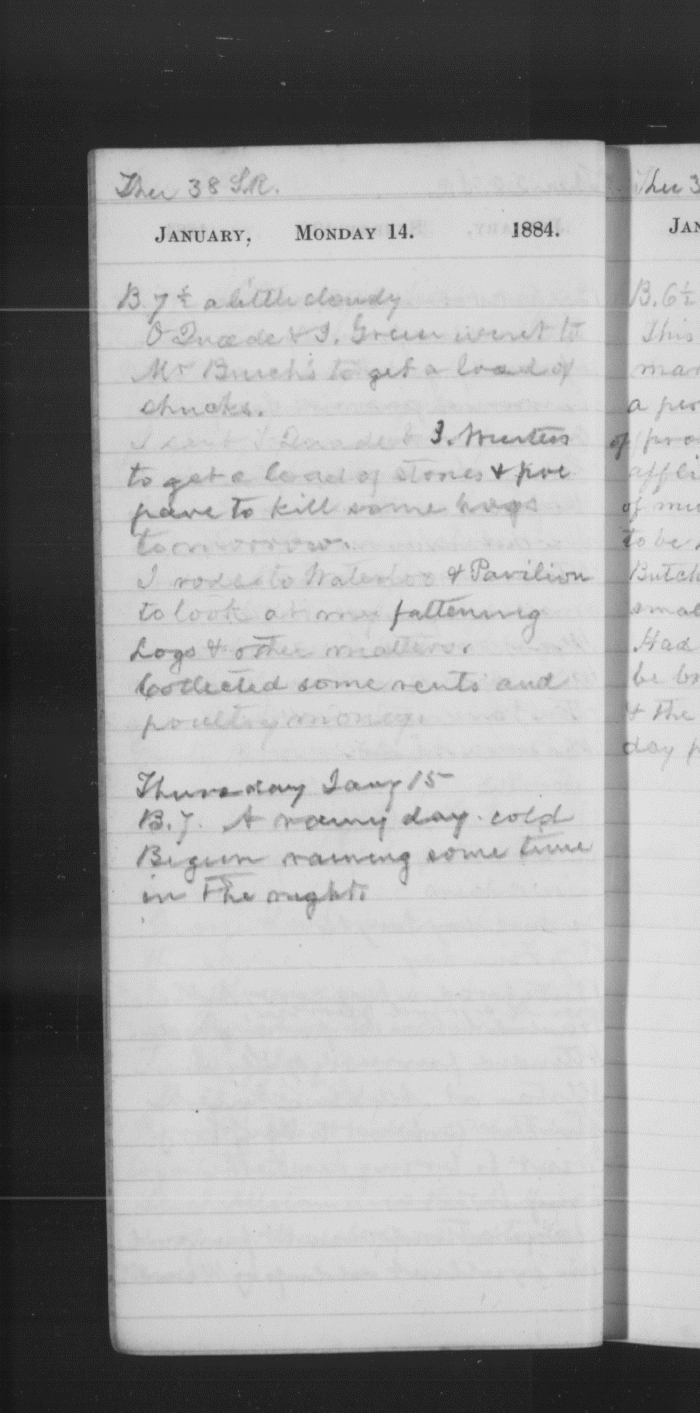 Ther 38 S.R.
JANUARY, MONDAY 14. 1884.
B. 7 ½ a little cloudy
O Quade & I. Green went to
Mr Burch's to get a load of
chucks.
I sent I Quade &
to get a load of stones & pre
pare to kill some hogs
tomorrow.
I rode to Waterloo & Pavilion
to look at my fattening
hogs & other matters.
Collected some rents and
poultry money.
Thursday Jany 15
B. 7. A rainy day. cold
Begun raining some time
in the night.
Ther 3
JAN
B. 6½
This
man
a per
of
affli
of mu
to be
Butch
smal
Had
be br
& the
day p